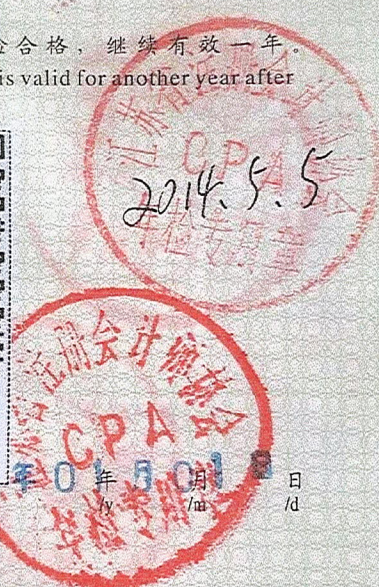 合格，继续有效一年。
is valid for another year after
江苏省注册会计师协会
CPA
2014.5.5
年检专用章
省注册会计师协会
CPA
年 月 日
/y /m /d
年检专用章